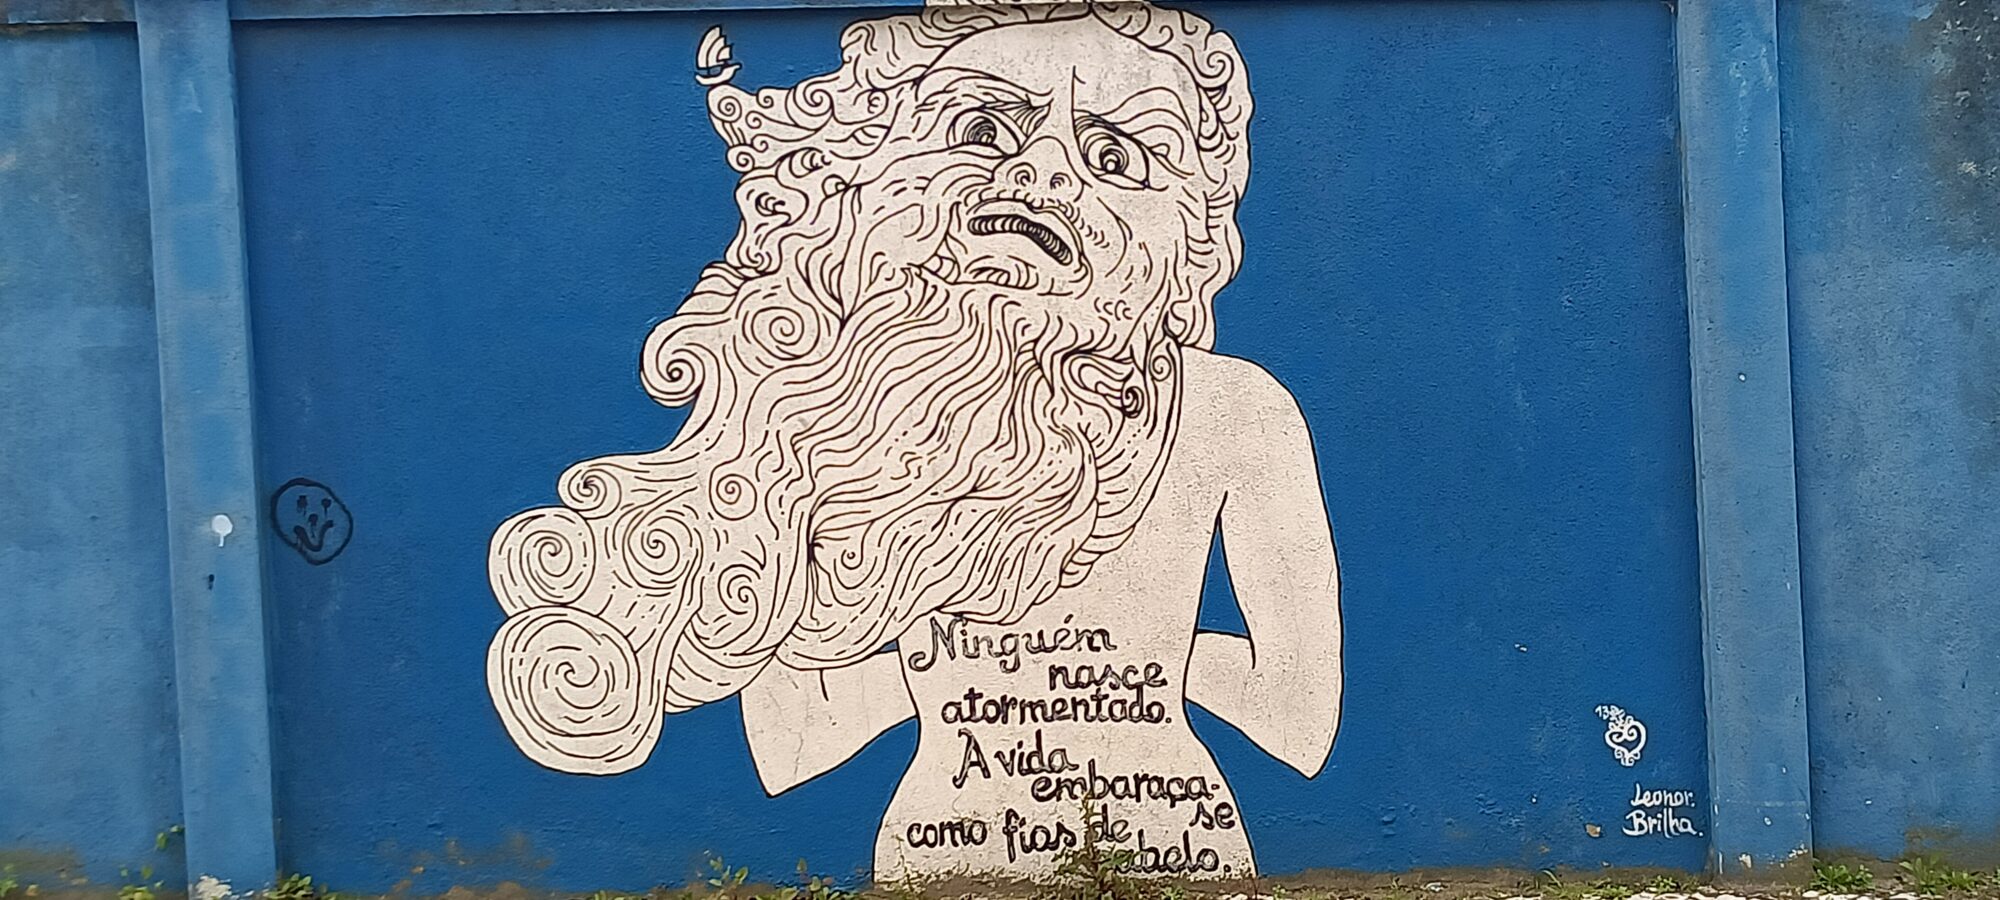 Ninguém
nasce
atormentado.
A vida
embaraça-
se
como fios de
cabelo.
Leonor.
Brilha.